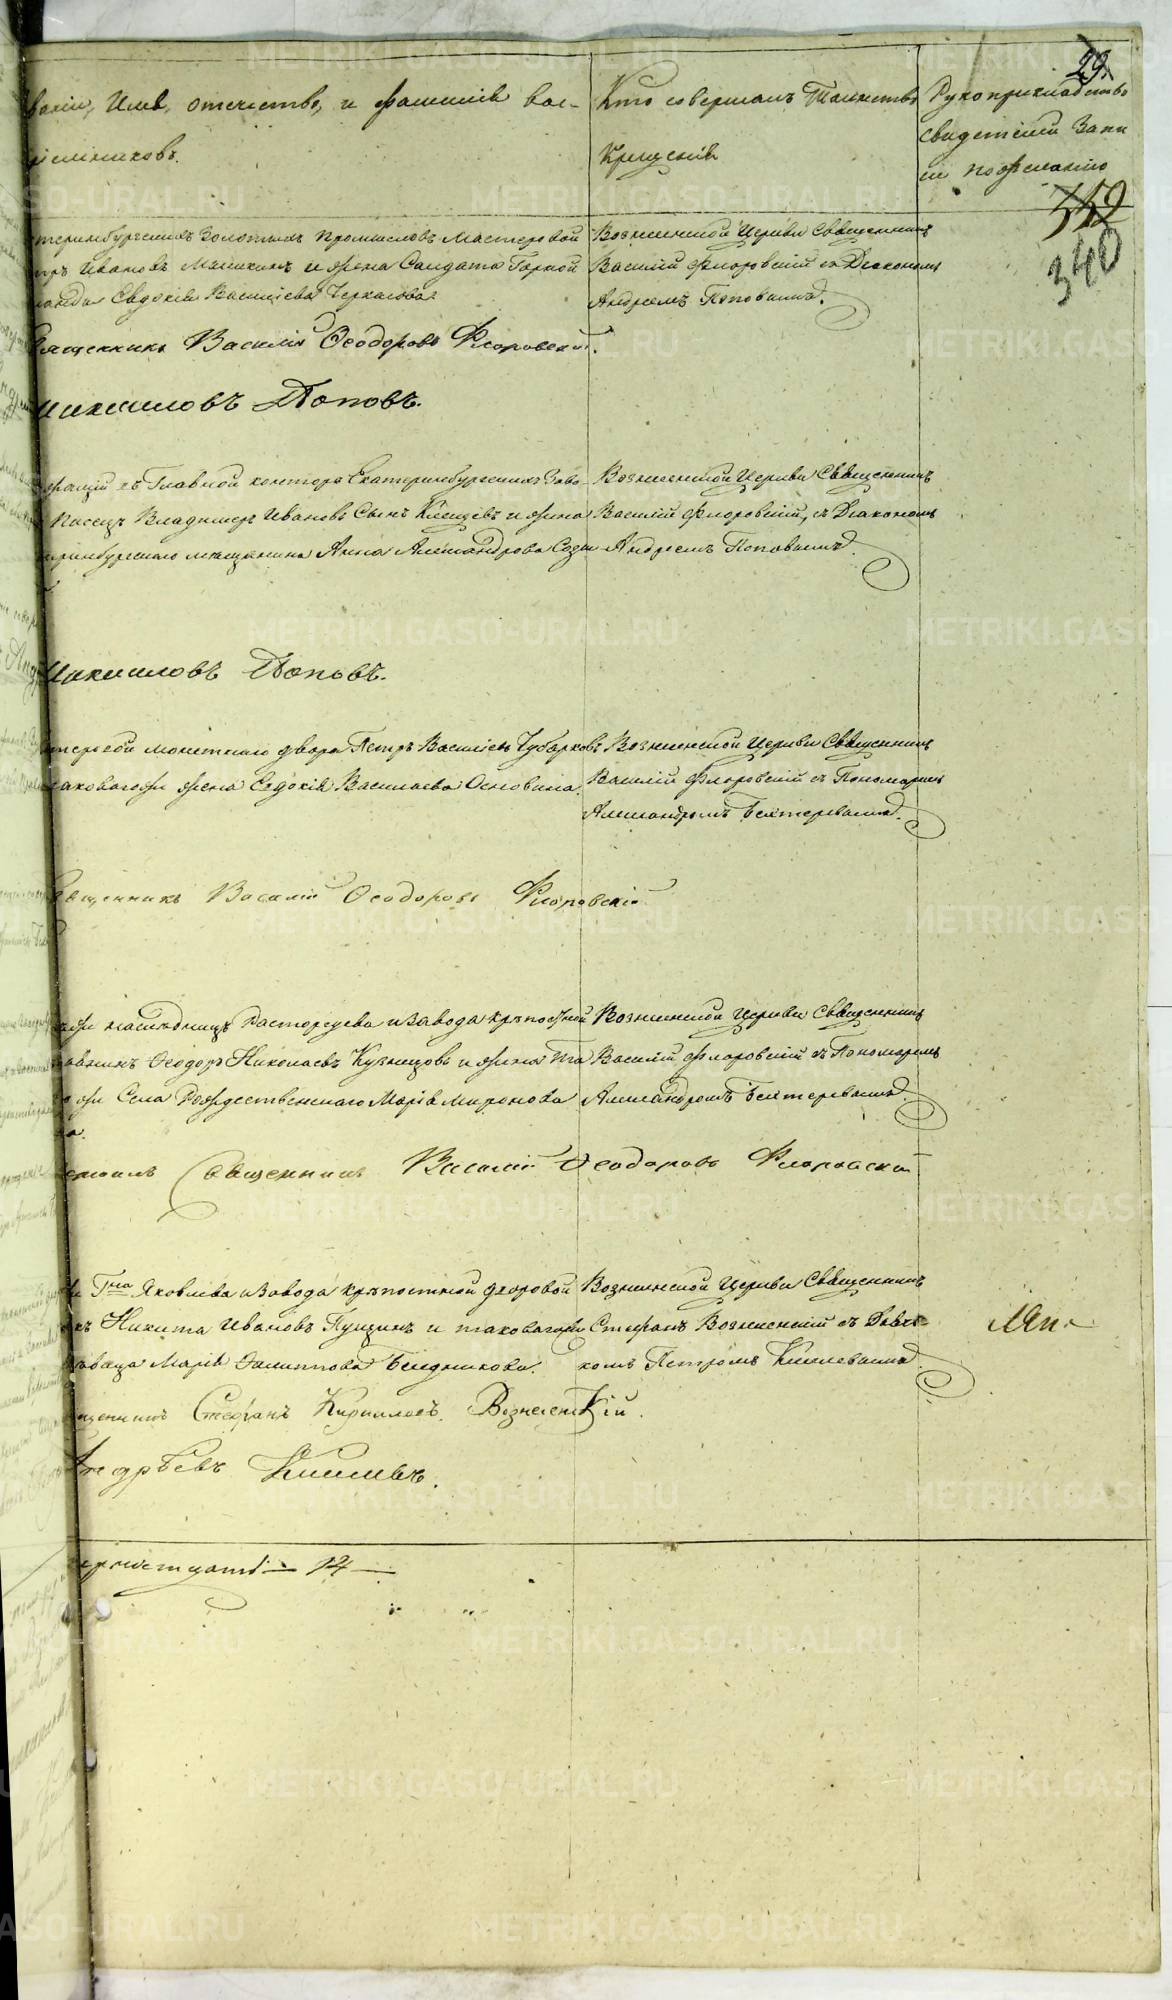 29
Званіе, Имя, отечество, и фамилія вос-
пріемниковъ.
Кто совершалъ Таинство
Крещенія
Рукоприкладство
свидетелей Запи
си по желанію
352
340
Екатеринбургскихъ Золотыхъ Промысловъ Мастеровой
Ивановъ Машкинъ и жена Солдата Горной
Команды Евдокія Васильева Черкасова
Вознесенской Церкви Священникъ
Василій Флоровскій съ Діакономъ
Андреемъ Поповымъ.
Священникъ Василій Ѳеодоровъ Флоровскій.
Михайловъ Поповъ.
въ Главной конторе Екатеринбургскихъ Заво-
Писецъ Владимеръ Ивановъ Сынъ Клещевъ и жена
Екатеринбургскаго мещанина Анна Александрова
Вознесенской Церкви Священникъ
Василій Флоровскій, съ Діакономъ
Андреемъ Поповымъ.
Михайловъ Поповъ.
Мастеровой монетнаго двора Петръ Васильевъ Чубарковъ
таковагожъ жена Евдокія Васильева Основина.
Вознесенской Церкви Священникъ
Василій Флоровскій съ Пономаремъ
Александромъ Бехтеревымъ.
Священникъ Василій Ѳеодоровъ Флоровскій
наследницъ Расторгуева Завода крепостной
Ѳеодоръ Николаевъ Кузнецовъ и жена
Села Рождественскаго Марія Миронова
Вознесенской Церкви Священникъ
Василій Флоровскій съ Пономаремъ
Александромъ Бехтеревымъ.
Священникъ Василій Ѳеодоровъ Флоровскій
Гна Яковлева Завода крепостной дворовой
Никита Ивановъ Пунцинъ и таковагожъ
Марія Филиппова
Вознесенской Церкви Священникъ
Стефанъ Вознесенскій съ Дьяч-
комъ Петромъ Киселевымъ
Священникъ Стефанъ Кирилловъ Вознесенскій.
Андрѣевъ Киселевъ.
14